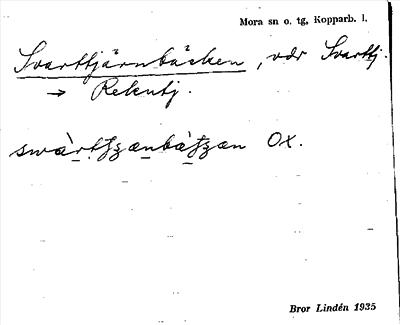 Mora sn o. tg, Kopparb. l.
Svarttjärnbäcken, vdr Svarttj.
→ Rekutj.
swa̱rtʃzænba̱ʃzæn Ox.
Bror Lindén 1935